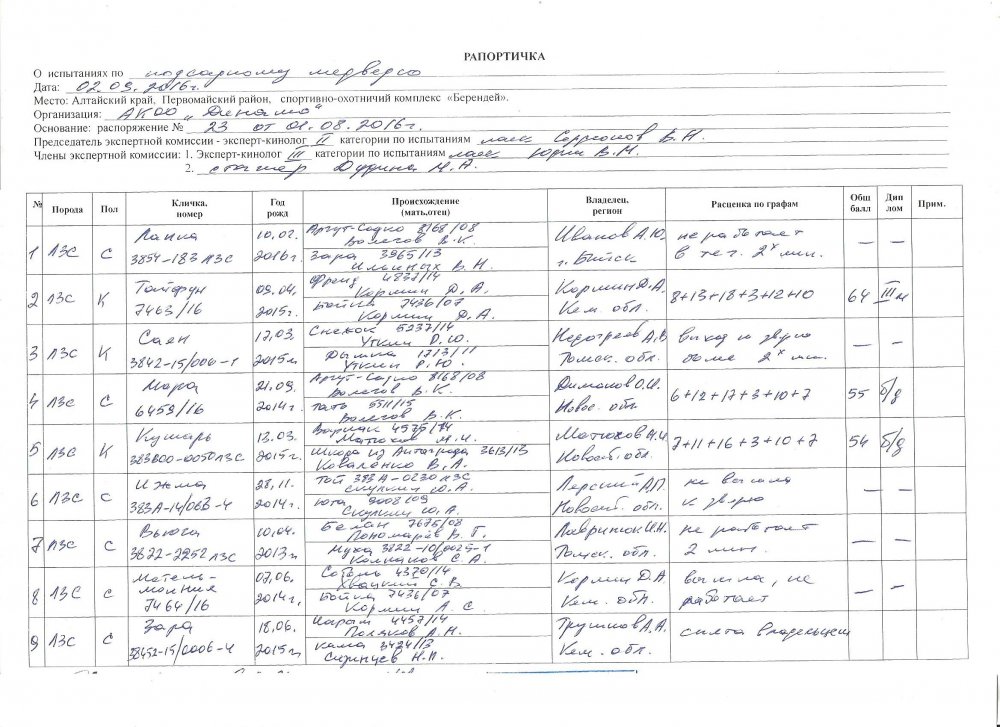 РАПОРТИЧКА
О испытаниях по подсадному медведю
Дата: 02.09.2016г.
Место: Алтайский край, Первомайский район, спортивно-охотничий комплекс «Берендей».
Организация: АКОО „Динамо“
Основание: распоряжение № 23 от 01.08.2016г.
Председатель экспертной комиссии - эксперт-кинолог II категории по испытаниям лаек В.Н.
Члены экспертной комиссии: 1. Эксперт-кинолог III категории по испытаниям лаек Юдин В.М.
2. стажер Н.А.
№ Порода Пол Кличка, номер Год рожд Происхождение (мать,отец) Владелец, регион Расценка по графам Общ балл Дип лом Прим.
1 ЛЗС С Лапка 10.02. Аргут-Садко 8168/08 Иванов А.Ю. не работает — —
3854-183 ЛЗС 2016г. Волегов В.К. г. Бийск в теч. 2х мин.
Зара 3965/13
Ильиных В.Н.
2 ЛЗС К Тайфун 09.04. Френд 4832/14 Кормин Д.А. 8+13+18+3+12+10 64 III м
7463/16 2015г. Кормин Д.А. Кем. обл.
Бойка 7436/07
Кормин Д.А.
3 ЛЗС К Саен 17.03. Снежок 5237/14 А.В. выход к зверю — —
3842-15/006-1 2015г. Уткин Р.Ю. Томск. обл. более 2х мин.
Дымка 1713/11
Уткин Р.Ю.
4 ЛЗС С Мара 21.09. Аргут-Садко 8168/08 О.И. 6+12+17+3+10+7 55 б/д
6459/16 2014г. Волегов В.К. Новос. обл.
Тать 5511/15
Волегов В.К.
5 ЛЗС К Кучарь 13.03. Варнак 4575/14 Матюхов М.И. 7+11+16+3+10+7 54 б/д
383В00-0050ЛЗС 2015г. Матюхов М.И. Новосиб. обл.
Шкода из 3613/13
Коваленко В.А.
6 ЛЗС С Ижма 28.11. Той 383А-0230 ЛЗС А.П. не вышла — —
383А-14/066-4 2014г. Скулкин Ю.А. Новосиб. обл. к зверю
Юта 9008/09
Скулкин Ю.А.
7 ЛЗС С Вьюга 10.04. Белан 7675/08 Лавринюк И.Н. не работает — —
3622-2952 ЛЗС 2013г. Пономарёв В.Г. Томск. обл. 2 мин.
Муха 3822-10/0025-1
Колпаков С.А.
8 ЛЗС С Метель- 07.06. Соболь 4370/14 Кормин Д.А. вышла, не — —
молния 2014г. С.В. Кем. обл. работает
7464/16 Бойка 7436/07
Кормин А.С.
9 ЛЗС С Зара 18.06. Нарым 4457/14 Трушков А.А. снята владельцем
38452-15/0006-4 2015г. Поляков А.Н. Кем. обл.
Кама 3424/13
Н.П.